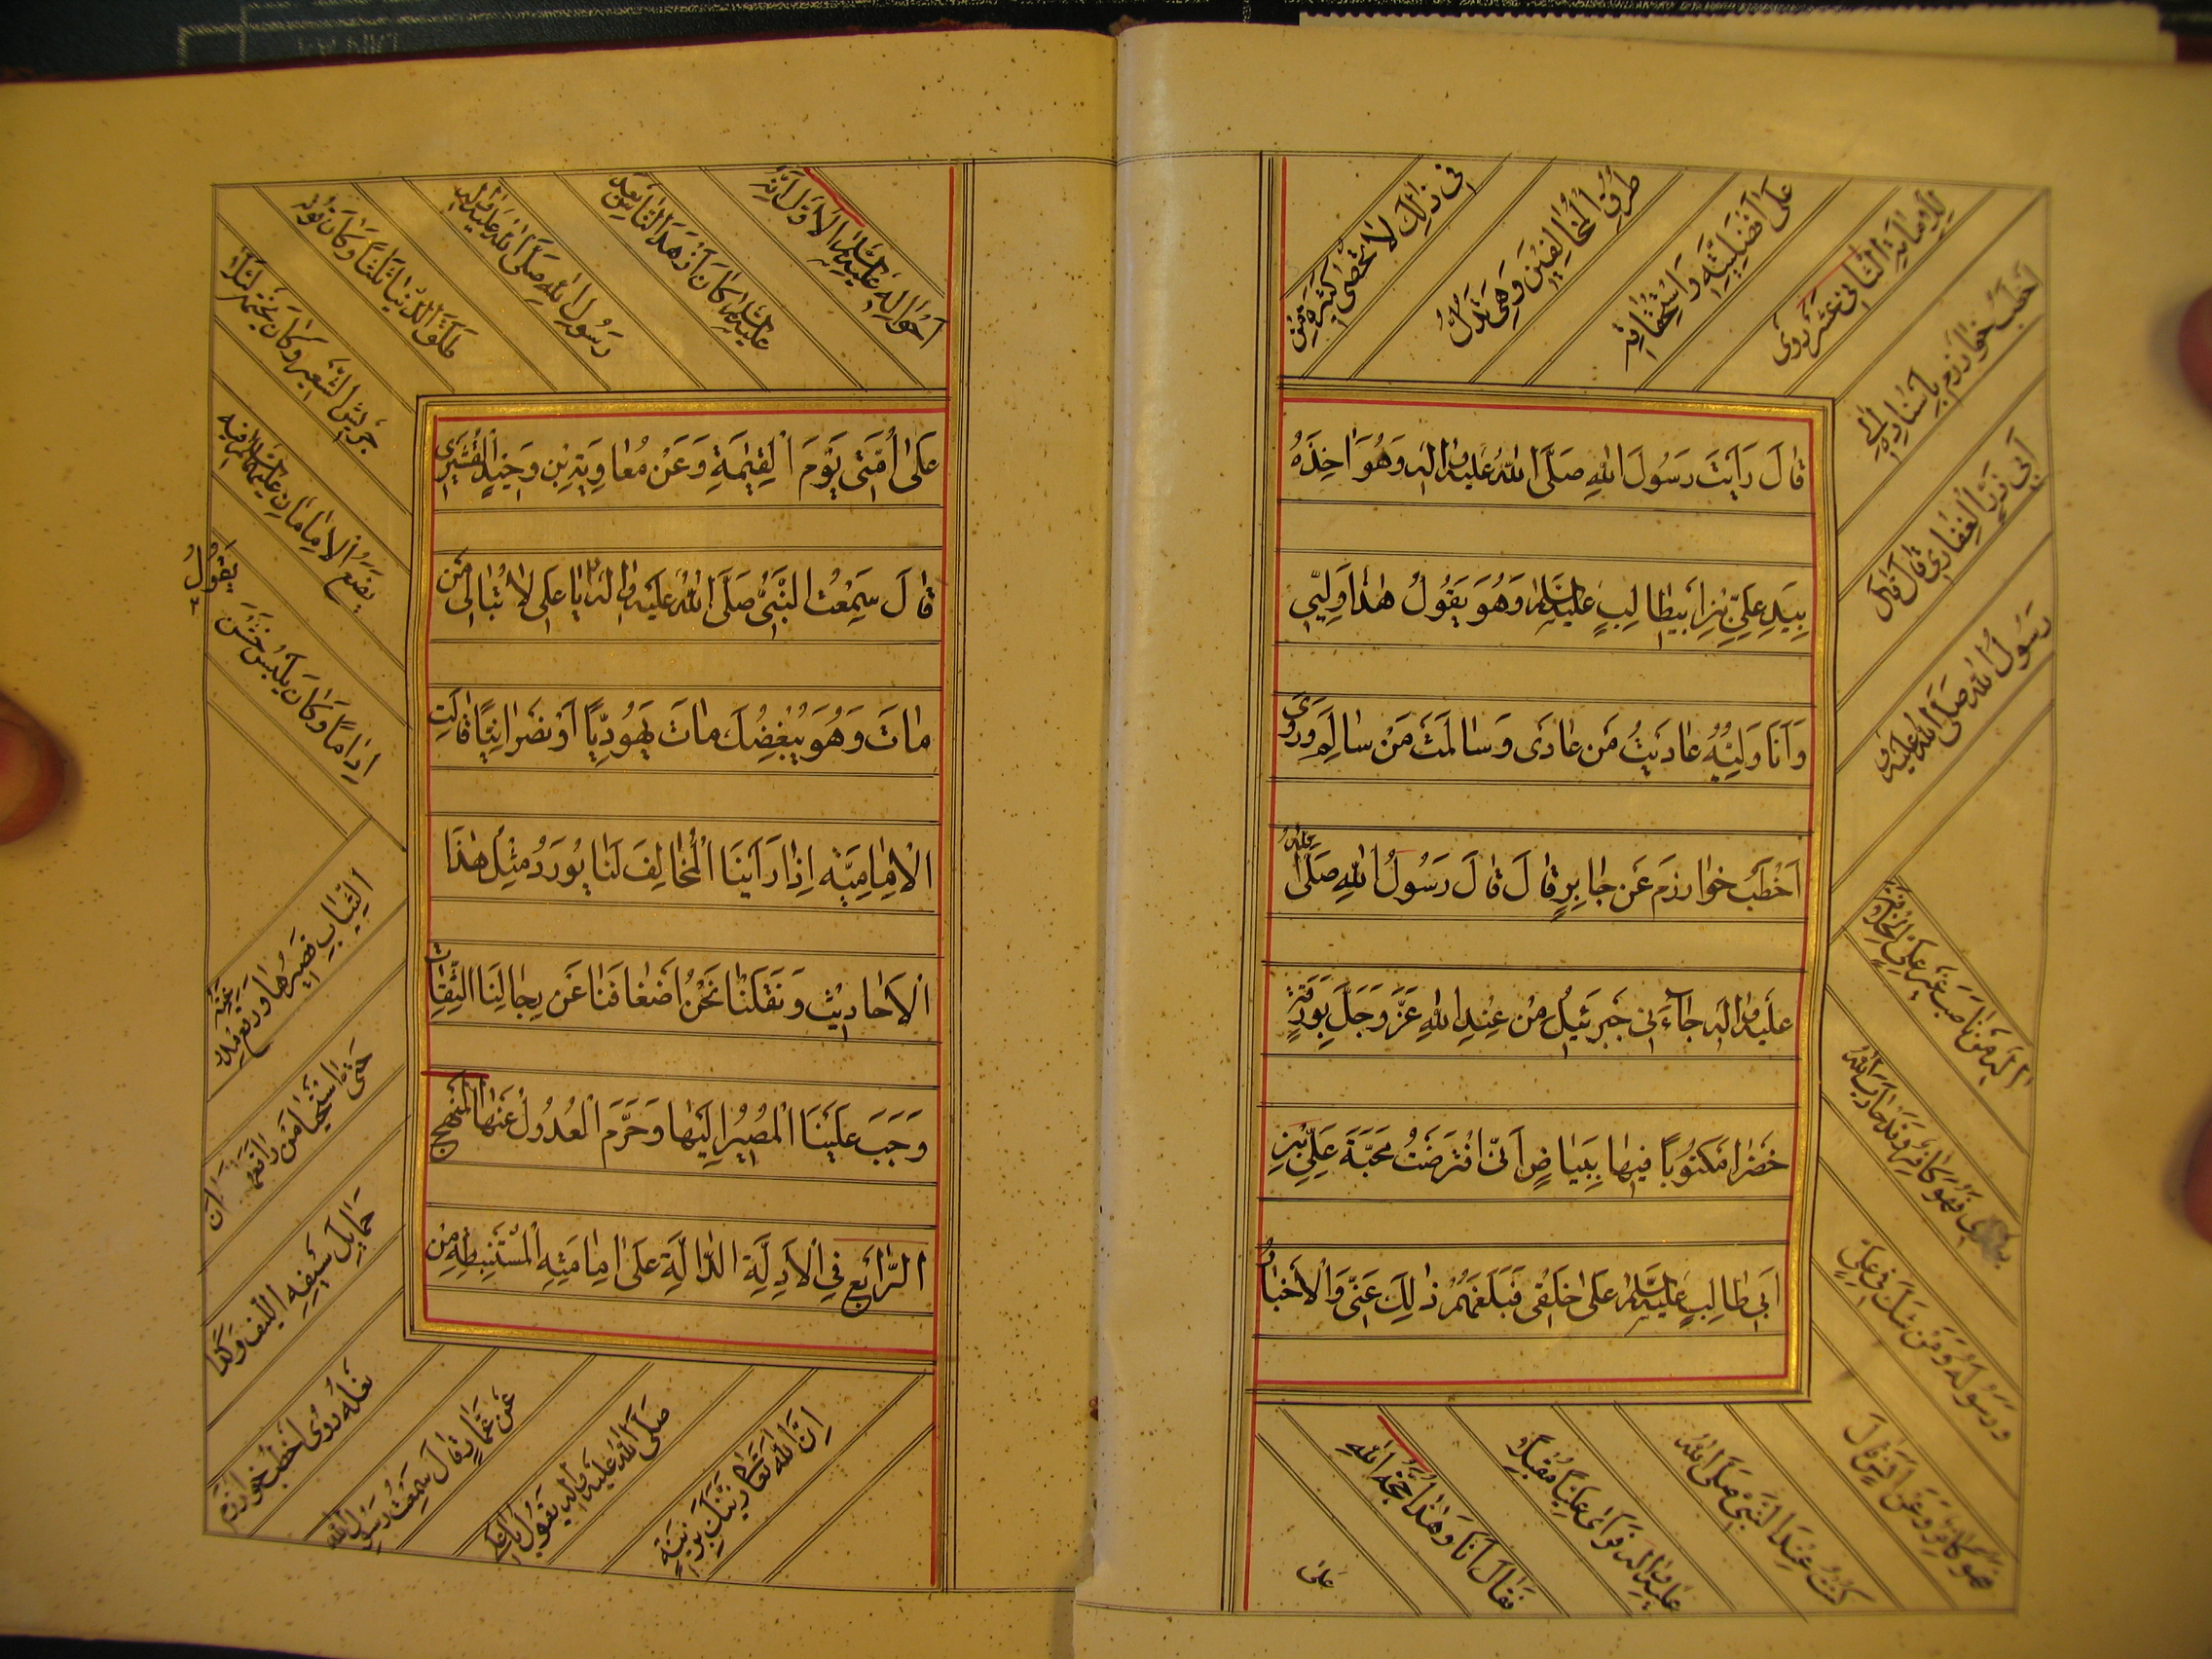 قَالَ رَاَيْتُ رَسُولَ اللهِ صَلَّى اللهُ عَلَيْهِ وَاٰلِهِ وَهُوَ اٰخِذٌ
بِيَدِ عَلِيِّ بْنِ اَبِيطالِبٍ عَلَيْهِ السَّلٰمُ وَهُوَ يَقُولُ هٰذا وَلِيّي
وَاَنَا وَلِيُّهُ عادَيْتُ مَنْ عادَى وَسالَمْتُ مَنْ سالَمَ وَرَوَى
اَخْطَبُ خوارزم عَن جابِرٍ قالَ قالَ رَسُولُ اللهِ صَلَّى اللهُ
عليه واله جآءَنِي جَبرَئيلُ مِن عِندِ اللهِ عَزَّ وَجَلَّ بِوَرَقَةٍ
خَضْرا مَكتُوبًا فيها بِبَياضٍ اَنّي افْتَرَضْتُ مَحَبَّةَ عَلِيِّ بْنِ
اَبِي طالِبٍ عَلَيْهِ السَّلٰمُ عَلى خَلْقِي فَبَلِّغْهُمْ ذٰلِكَ عَنّي وَالاَخبارُ
فِي ذٰلِكَ لا تُحْصى كَثْرَةً مِن
طُرُقِ المُخالِفينَ وَهِيَ تَدُلُّ
عَلى اَفْضَلِيَّتِهِ وَاسْتِحْقاقِهِ
لِلْاِمامَةِ الثّانِي عَشَر رَوى
اَخْطَبُ خوارَزم بِاَسْنادِهِ اِلى
اَبِي ذَرٍّ الغِفارِي قالَ قالَ
رَسُولُ اللهِ صَلَّى اللهُ عَلَيْهِ وَ
اٰلِهِ مَنْ ناصَبَ عَلِيَّ الخِلافَة
بعدي فَهُوَ كافِرٌ وَقَد حارَبَ اللهَ
وَرَسُولَهُ وَمَن شَكَّ فِي عَلِيٍّ
فَهُوَ كافِرٌ وَعَن اَنَسٍ قالَ
كُنْتُ عِنْدَ النَّبِيِّ صَلَّى اللهُ
عَلَيْهِ وَاٰلِهِ فَرَاٰى عَلِيًّا مُقْبِلًا
فَقالَ اَنَا وَهٰذا حُجَّةُ اللهِ
عَلى
عَلى اُمَّتي يَوْمَ القِيٰمَةِ وَعَنْ مُعاوِيَةَ بْنِ وَحِيدٍ القُشَيْرِي
قالَ سَمِعْتُ النَّبِيَّ صَلَّى اللهُ عَلَيْهِ وَاٰلِهِ يا عَلِي لا تُبالِي مَن
ماتَ وَهُوَ يُبْغِضُكَ ماتَ يَهُودِيًّا اَوْ نَصْرانِيًّا قالَتِ
الْاِمامِيَّة اِذا رَاَيْنَا الْمُخالِفَ لَنا يُورِدُ مِثْلَ هٰذا
الْاَحاديث وَنَقَلْنا نَحْنُ اَضْعافَنا عَن رِجالِنَا الثِّقاتِ
وَجَبَ عَلَيْنَا الْمَصِيرُ اِلَيْها وَحَرُمَ الْعُدُولُ عَنْها الْمَنْهَج
الرّابِع فِي الْاَدِلَّةِ الدّالَّةِ عَلى اِمامَتِهِ الْمُسْتَنْبِطَة مِنْ
اَحْوالِهِ عَلَيْهِ السَّلٰمُ الْاَوَّلُ اَنَّهُ
عَلَيْهِ السَّلٰمُ كانَ اَزْهَدَ النّاسِ بَعْدَ
رَسُولِ اللهِ صَلَّى اللهُ عَلَيْهِ وَاٰلِهِ
طَلَّقَ الدُّنيا ثَلٰثًا وَكانَ قُوتُه
جَرِيشَ الشَّعِيرِ وَكانَ يَخْتِمُهُ لِئَلّا
يَضَعُ الْاِمامانِ عليهما السلام فيه
يَقُولُ
اِدامًا وَكانَ يَلْبَسُ خَشِنَ
الثِّيابِ قَصِيرَها وَرَقَعَ مِدْرَعَتَه
حَتَّى اسْتَحْيا مِن راقِعِها
حَمايِلُ سَيْفِهِ اللّيف وَكَذا
نَعْلُهُ رَوى اَخْطَبُ خوارَزم
عَن عَمّارٍ قالَ سَمِعْتُ رَسُولَ اللهِ
صَلَّى اللهُ عَلَيْهِ وَاٰلِهِ يَقُولُ يا عَلِي
اِنَّ اللهَ تَعالى زَيَّنَكَ بِزِينَةٍ